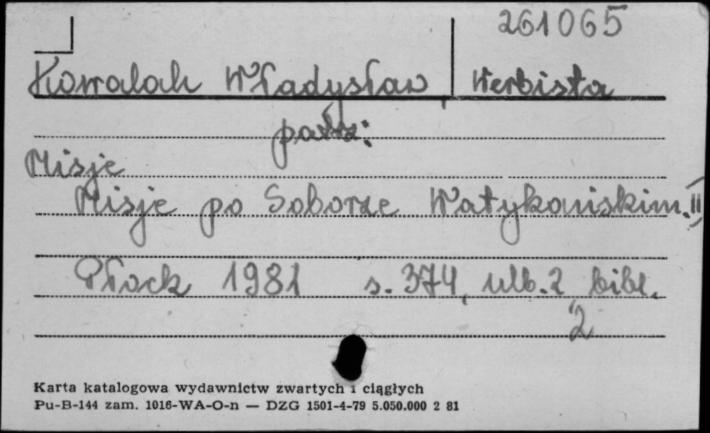 261065
Kowalak Władysław, Werbista
patrz:
Misje
Misje po Soborze Watykańskim. II
Płock 1981 s. 374, ulb. 2, bibl.
2
Karta katalogowa wydawnictw zwartych i ciągłych
Pu-B-144 zam. 1016-WA-O-n — DZG 1501-4-79 5.050.000 2 81